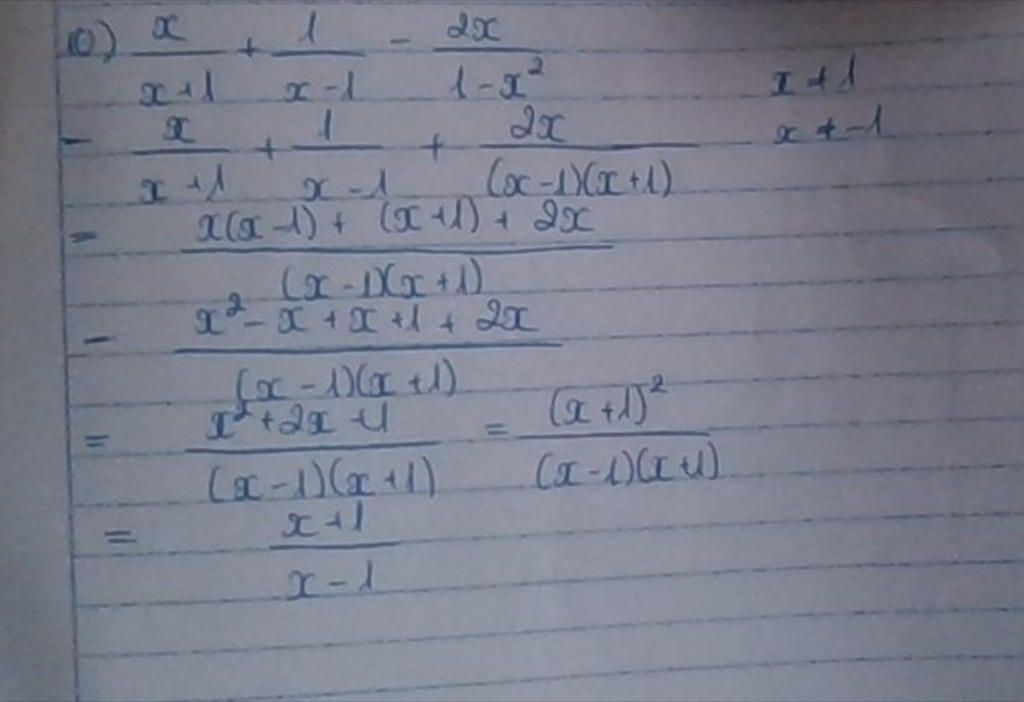 10) x/(x+1) + 1/(x-1) - 2x/(1-x²) x ≠ 1
= x/(x+1) + 1/(x-1) + 2x/((x-1)(x+1)) x ≠ -1
= (x(x-1) + (x+1) + 2x)/((x-1)(x+1))
= (x² - x + x + 1 + 2x)/((x-1)(x+1))
= (x² + 2x + 1)/((x-1)(x+1)) = (x+1)²/((x-1)(x+1))
= (x+1)/(x-1)